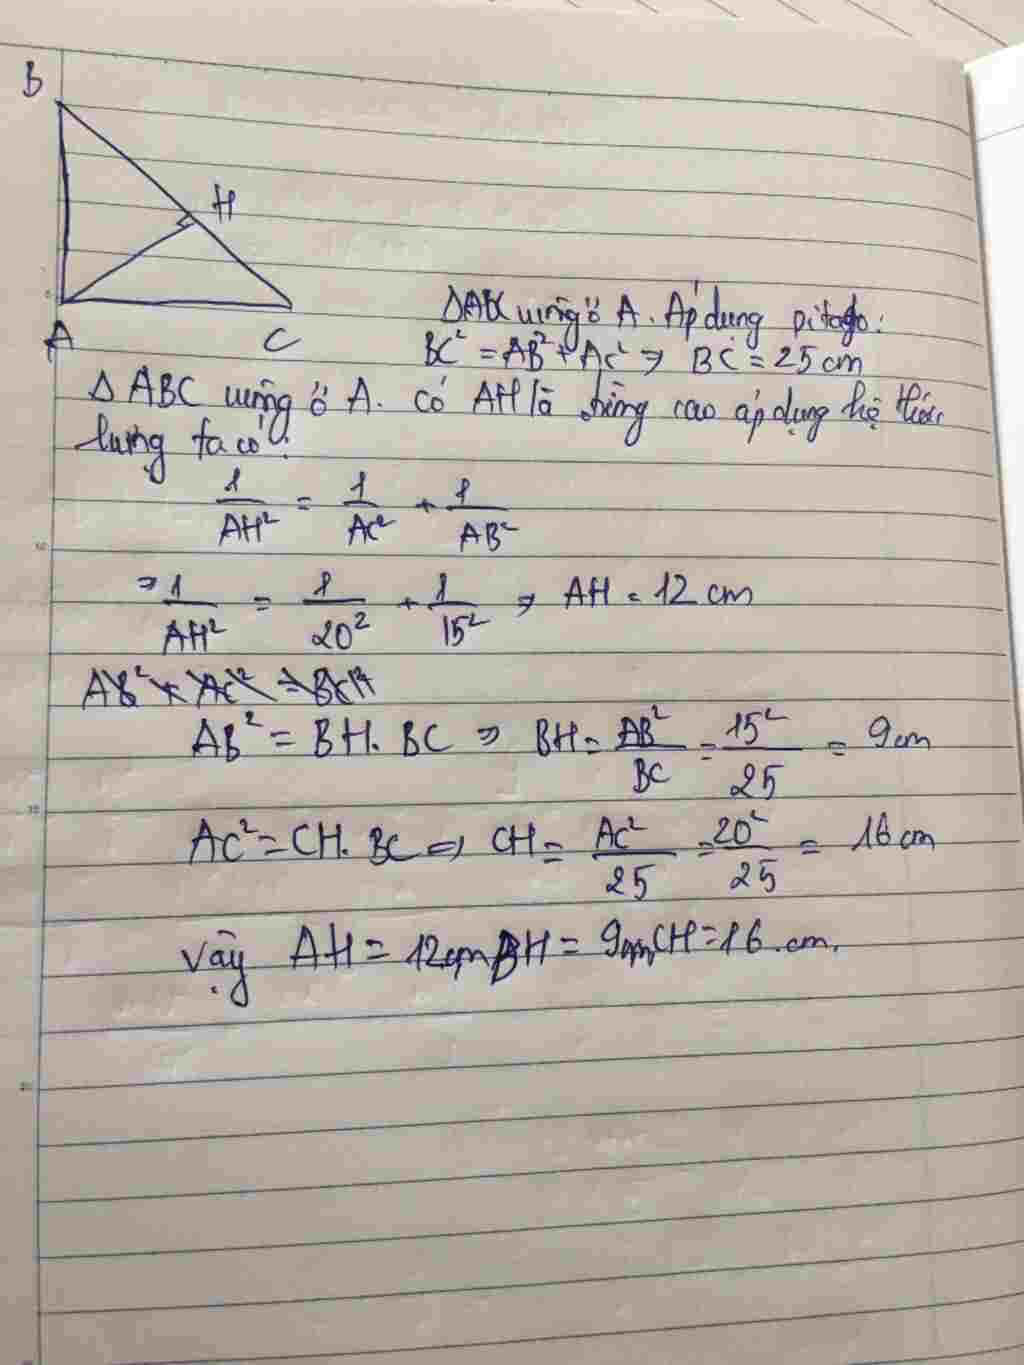 B
H
A
C
ΔABC vuông ở A. Áp dụng pitago:
BC² = AB² + AC² => BC = 25 cm
Δ ABC vuông ở A. có AH là đường cao áp dụng hệ thức
lượng ta có:
1/AH² = 1/AC² + 1/AB²
=> 1/AH² = 1/20² + 1/15² => AH = 12 cm
AB² = BH. BC => BH = AB²/BC = 15²/25 = 9cm
AC² = CH. BC => CH = AC²/25 = 20²/25 = 16 cm
vậy AH = 12cm BH = 9cm CH = 16 cm.